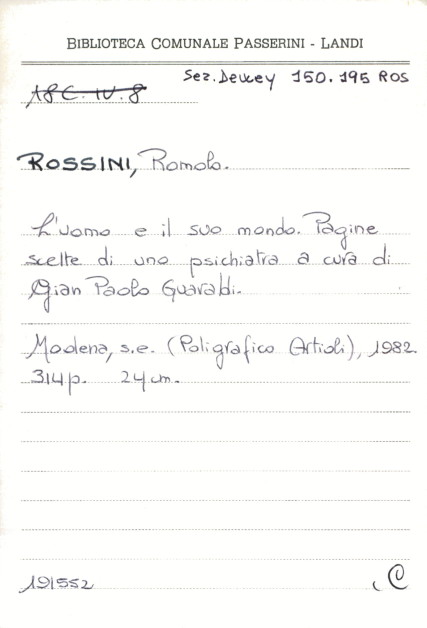 BIBLIOTECA COMUNALE PASSERINI - LANDI
Sez. Dewey 150.195 ROS
ROSSINI, Romolo.
L'uomo e il suo mondo. Pagine
scelte di uno psichiatra a cura di
Gian Paolo Guaraldi.
Modena, s.e. (Poligrafico Artioli), 1982.
314p. 24 cm.
191552
C